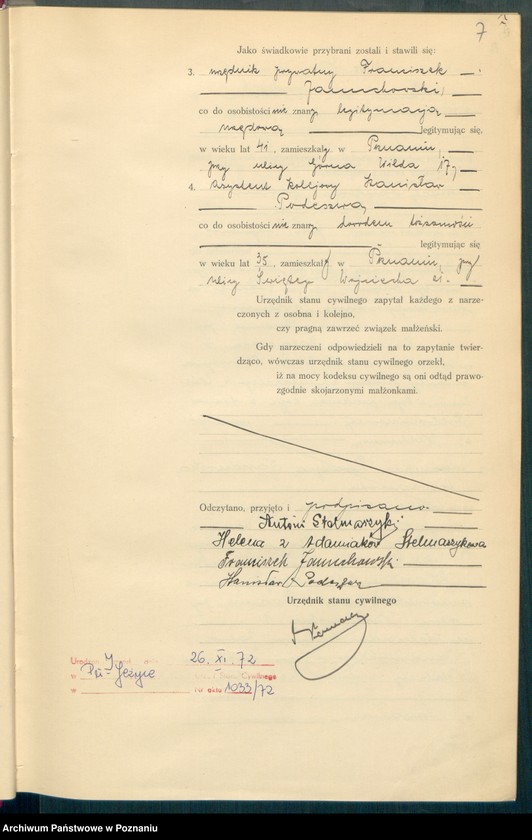 7
Jako świadkowie przybrani zostali i stawili się:
3. urzędnik prywatny Franciszek
Januchowski,
co do osobistości nie znany legitymacją
urzędową legitymując się,
w wieku lat 41, zamieszkały w Poznaniu,
przy ulicy Górna Wilda 17,
4. asystent kolejowy Stanisław
Podeszwa
co do osobistości nie znany dowodem tożsamości
legitymując się
w wieku lat 35, zamieszkały w Poznaniu, przy
ulicy Święty Wojciecha 21.
Urzędnik stanu cywilnego zapytał każdego z narze-
czonych z osobna i kolejno,
czy pragną zawrzeć związek małżeński.
Gdy narzeczeni odpowiedzieli na to zapytanie twier-
dząco, wówczas urzędnik stanu cywilnego orzekł,
iż na mocy kodeksu cywilnego są oni odtąd prawo-
zgodnie skojarzonymi małżonkami.
Odczytano, przyjęto i podpisano.
Antoni Stelmaszyk
Helena z Adamiaków Stelmaszykowa
Franciszek Januchowski
Stanisław Podeszwa
Urzędnik stanu cywilnego
26. XI. 72
w Pń-Jeżyce Stanu Cywilnego
w nr aktu 1033/72
Archiwum Państwowe w Poznaniu